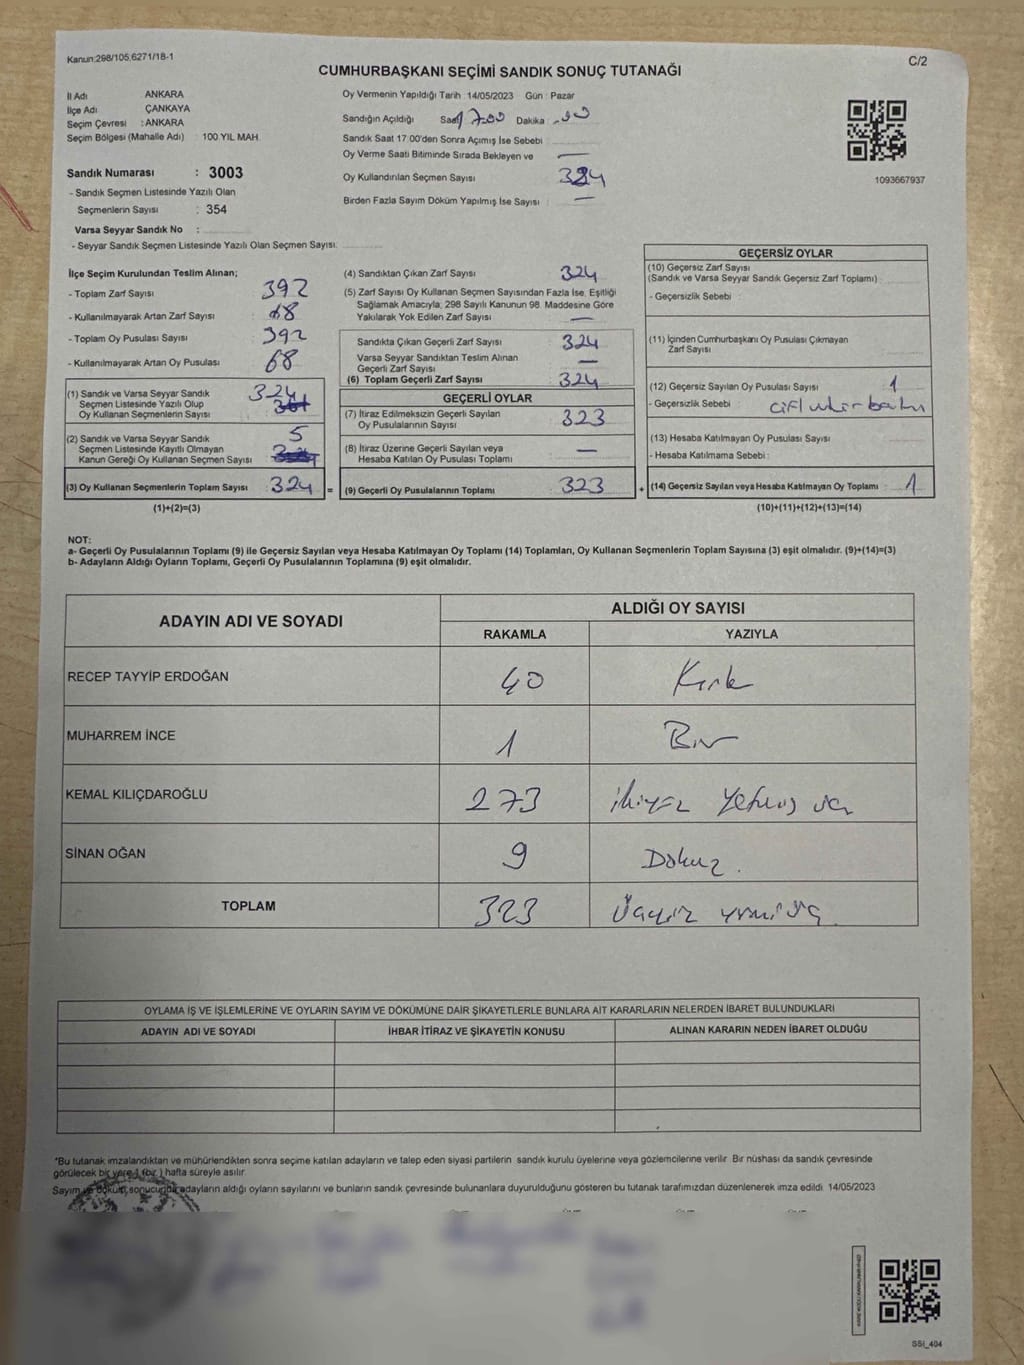 Kanun:298/105,6271/18-1
C/2
CUMHURBAŞKANI SEÇİMİ SANDIK SONUÇ TUTANAĞI
İl Adı ANKARA
İlçe Adı ÇANKAYA
Seçim Çevresi : ANKARA
Seçim Bölgesi (Mahalle Adı) : 100.YIL MAH.
Sandık Numarası : 3003
- Sandık Seçmen Listesinde Yazılı Olan
Seçmenlerin Sayısı : 354
Varsa Seyyar Sandık No :
- Seyyar Sandık Seçmen Listesinde Yazılı Olan Seçmen Sayısı:
Oy Vermenin Yapıldığı Tarih :14/05/2023 Gün : Pazar
Sandığın Açıldığı Saat 17.00 Dakika : 00
Sandık Saat 17:00'den Sonra Açımış İse Sebebi :
Oy Verme Saati Bitiminde Sırada Bekleyen ve —
Oy Kullandırılan Seçmen Sayısı 324
Birden Fazla Sayım Döküm Yapılmış İse Sayısı : —
1093667937
İlçe Seçim Kurulundan Teslim Alınan;
- Toplam Zarf Sayısı 392
- Kullanılmayarak Artan Zarf Sayısı : 68
- Toplam Oy Pusulası Sayısı : 392
- Kullanılmayarak Artan Oy Pusulası : 68
(1) Sandık ve Varsa Seyyar Sandık 324
Seçmen Listesinde Yazılı Olup
Oy Kullanan Seçmenlerin Sayısı
(2) Sandık ve Varsa Seyyar Sandık 5
Seçmen Listesinde Kayıtlı Olmayan
Kanun Gereği Oy Kullanan Seçmen Sayısı
(3) Oy Kullanan Seçmenlerin Toplam Sayısı : 324 =
(1)+(2)=(3)
(4) Sandıktan Çıkan Zarf Sayısı 324
(5) Zarf Sayısı Oy Kullanan Seçmen Sayısından Fazla İse, Eşitliği
Sağlamak Amacıyla, 298 Sayılı Kanunun 98. Maddesine Göre
Yakılarak Yok Edilen Zarf Sayısı : —
Sandıkta Çıkan Geçerli Zarf Sayısı : 324
Varsa Seyyar Sandıktan Teslim Alınan
Geçerli Zarf Sayısı : —
(6) Toplam Geçerli Zarf Sayısı : 324
GEÇERLİ OYLAR
(7) İtiraz Edilmeksizin Geçerli Sayılan
Oy Pusulalarının Sayısı : 323
(8) İtiraz Üzerine Geçerli Sayılan veya
Hesaba Katılan Oy Pusulası Toplamı : —
(9) Geçerli Oy Pusulalarının Toplamı : 323 +
GEÇERSİZ OYLAR
(10) Geçersiz Zarf Sayısı
(Sandık ve Varsa Seyyar Sandık Geçersiz Zarf Toplamı) :
- Geçersizlik Sebebi :
(11) İçinden Cumhurbaşkanı Oy Pusulası Çıkmayan
Zarf Sayısı
(12) Geçersiz Sayılan Oy Pusulası Sayısı : 1
- Geçersizlik Sebebi :
(13) Hesaba Katılmayan Oy Pusulası Sayısı :
- Hesaba Katılmama Sebebi :
(14) Geçersiz Sayılan veya Hesaba Katılmayan Oy Toplamı : 1
(10)+(11)+(12)+(13)=(14)
NOT:
a- Geçerli Oy Pusulalarının Toplamı (9) ile Geçersiz Sayılan veya Hesaba Katılmayan Oy Toplamı (14) Toplamları, Oy Kullanan Seçmenlerin Toplam Sayısına (3) eşit olmalıdır. (9)+(14)=(3)
b- Adayların Aldığı Oyların Toplamı, Geçerli Oy Pusulalarının Toplamına (9) eşit olmalıdır.
ADAYIN ADI VE SOYADI
ALDIĞI OY SAYISI
RAKAMLA YAZIYLA
RECEP TAYYİP ERDOĞAN 40 Kırk
MUHARREM İNCE 1 Bir
KEMAL KILIÇDAROĞLU 273 ikiyüz yetmiş üç
SİNAN OĞAN 9 Dokuz.
TOPLAM 323 Üçyüz yirmi üç
OYLAMA İŞ VE İŞLEMLERİNE VE OYLARIN SAYIM VE DÖKÜMÜNE DAİR ŞİKAYETLERLE BUNLARA AİT KARARLARIN NELERDEN İBARET BULUNDUKLARI
ADAYIN ADI VE SOYADI İHBAR İTİRAZ VE ŞİKAYETİN KONUSU ALINAN KARARIN NEDEN İBARET OLDUĞU
*Bu tutanak imzalandıktan ve mühürlendikten sonra seçime katılan adayların ve talep eden siyasi partilerin sandık kurulu üyelerine veya gözlemcilerine verilir. Bir nüshası da sandık çevresinde
görülecek bir yere 1 (bir ) hafta süreyle asılır.
Sayım ve döküm sonucunda adayların aldığı oyların sayılarını ve bunların sandık çevresinde bulunanlara duyurulduğunu gösteren bu tutanak tarafımızdan düzenlenerek imza edildi. 14/05/2023
SSI_404